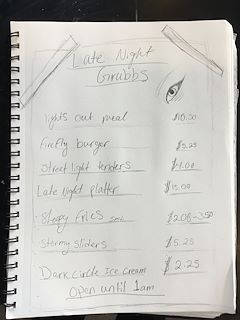 Late Night
Grubbs
lights out meal $10.00
firefly burger $5.25
street light tenders $4.00
Late night platter $15.00
Sleepy fries $2.00-3.50
Stormy sliders $5.25
Dark Circle Ice cream $2.25
Open until 1am